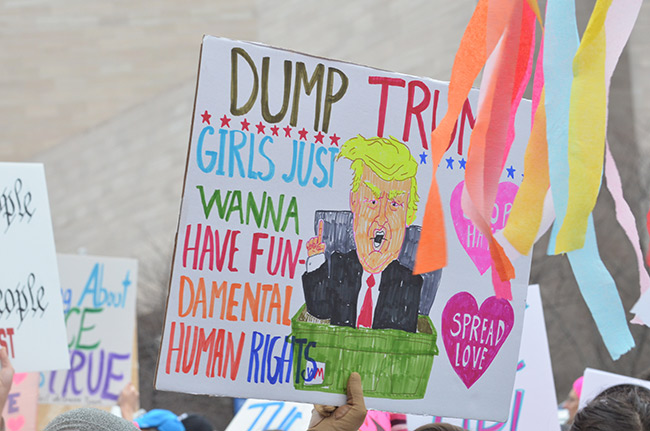 DUMP TRUM
GIRLS JUST
WANNA
HAVE FUN-
DAMENTAL
HUMAN RIGHTS
SPREAD
LOVE
People
People
About
RUE